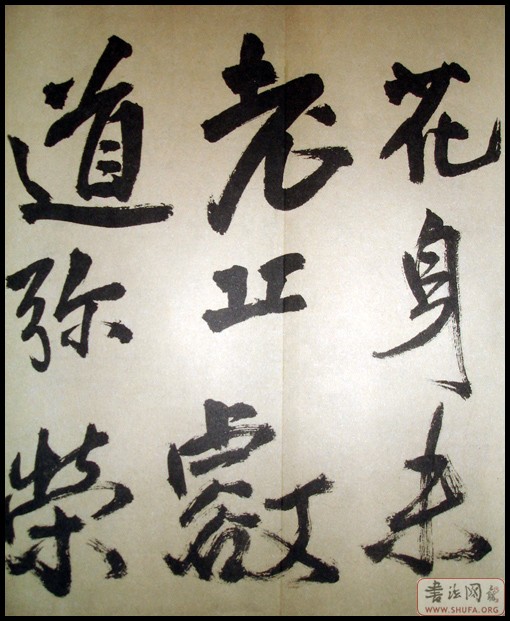 花身未
老丘壑
道弥荣
书法网
WWW.SHUFA.ORG